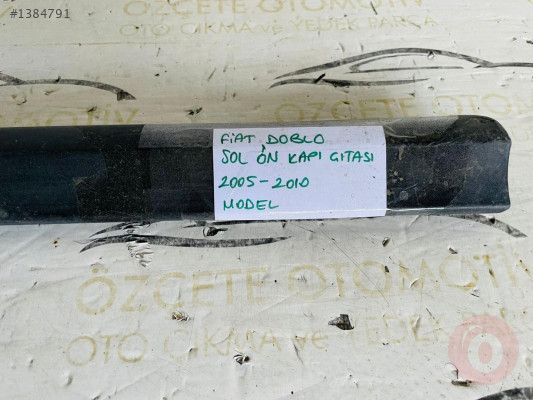 #1384791
ÖZCETE OTOMOTİV
OTO ÇIKMA ve YEDEK PARÇA
FİAT DOBLO
SOL ÖN KAPI GITASI
2005-2010
MODEL
ÖZCETE OTOMOTİV
OTO ÇIKMA ve YEDEK PARÇA